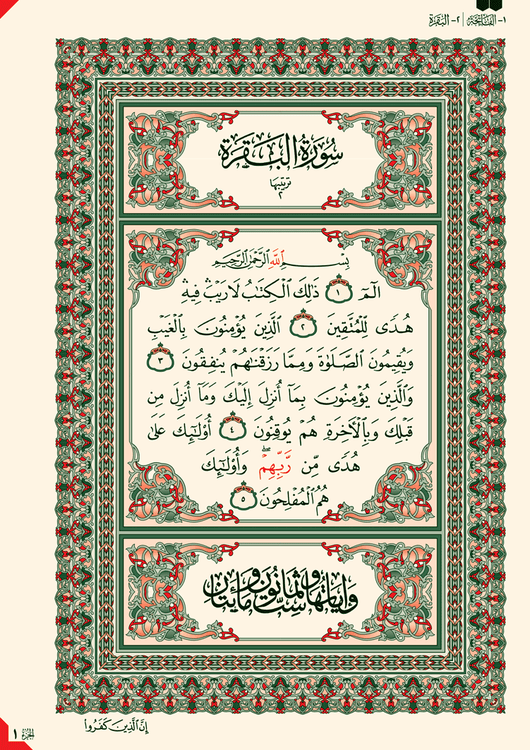 ١- الفَاتِحَة | ٢- البَقَرَة
سُورَةُ البَقَرَة
تَرْتِيبُهَا
٢
بِسْمِ ٱللَّهِ ٱلرَّحْمَٰنِ ٱلرَّحِيمِ
الٓمٓ ١ ذَٰلِكَ ٱلْكِتَٰبُ لَا رَيْبَۛ فِيهِۛ
هُدًى لِّلْمُتَّقِينَ ٢ ٱلَّذِينَ يُؤْمِنُونَ بِٱلْغَيْبِ
وَيُقِيمُونَ ٱلصَّلَوٰةَ وَمِمَّا رَزَقْنَٰهُمْ يُنفِقُونَ ٣
وَٱلَّذِينَ يُؤْمِنُونَ بِمَآ أُنزِلَ إِلَيْكَ وَمَآ أُنزِلَ مِن
قَبْلِكَ وَبِٱلْءَاخِرَةِ هُمْ يُوقِنُونَ ٤ أُو۟لَٰٓئِكَ عَلَىٰ
هُدًى مِّن رَّبِّهِمْۖ وَأُو۟لَٰٓئِكَ
هُمُ ٱلْمُفْلِحُونَ ٥
وَآيَاتُهَا سِتٌّ وَثَمَانُونَ وَمِائَتَانِ
إِنَّ ٱلَّذِينَ كَفَرُوا۟
الجُزء ١